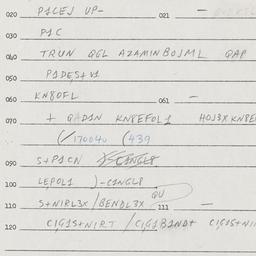 020 P1CEJ UP- 021 -
030 P1C
040 TRUN QGL AZAMINBOJML QAP
050 P1DES+V1
060 KN8OFL 061 -
070 + QAD1N KN8EFOL1 HOJ3X KN8E
(/170040 (439
090 S+P1CN
100 LEPOL1 )-C1NGL8
110 S+NIRL3X/BENDL3X QU 111 -
120 C1G1S+NIRT /C1G1B1ND+ C1G1S+NI